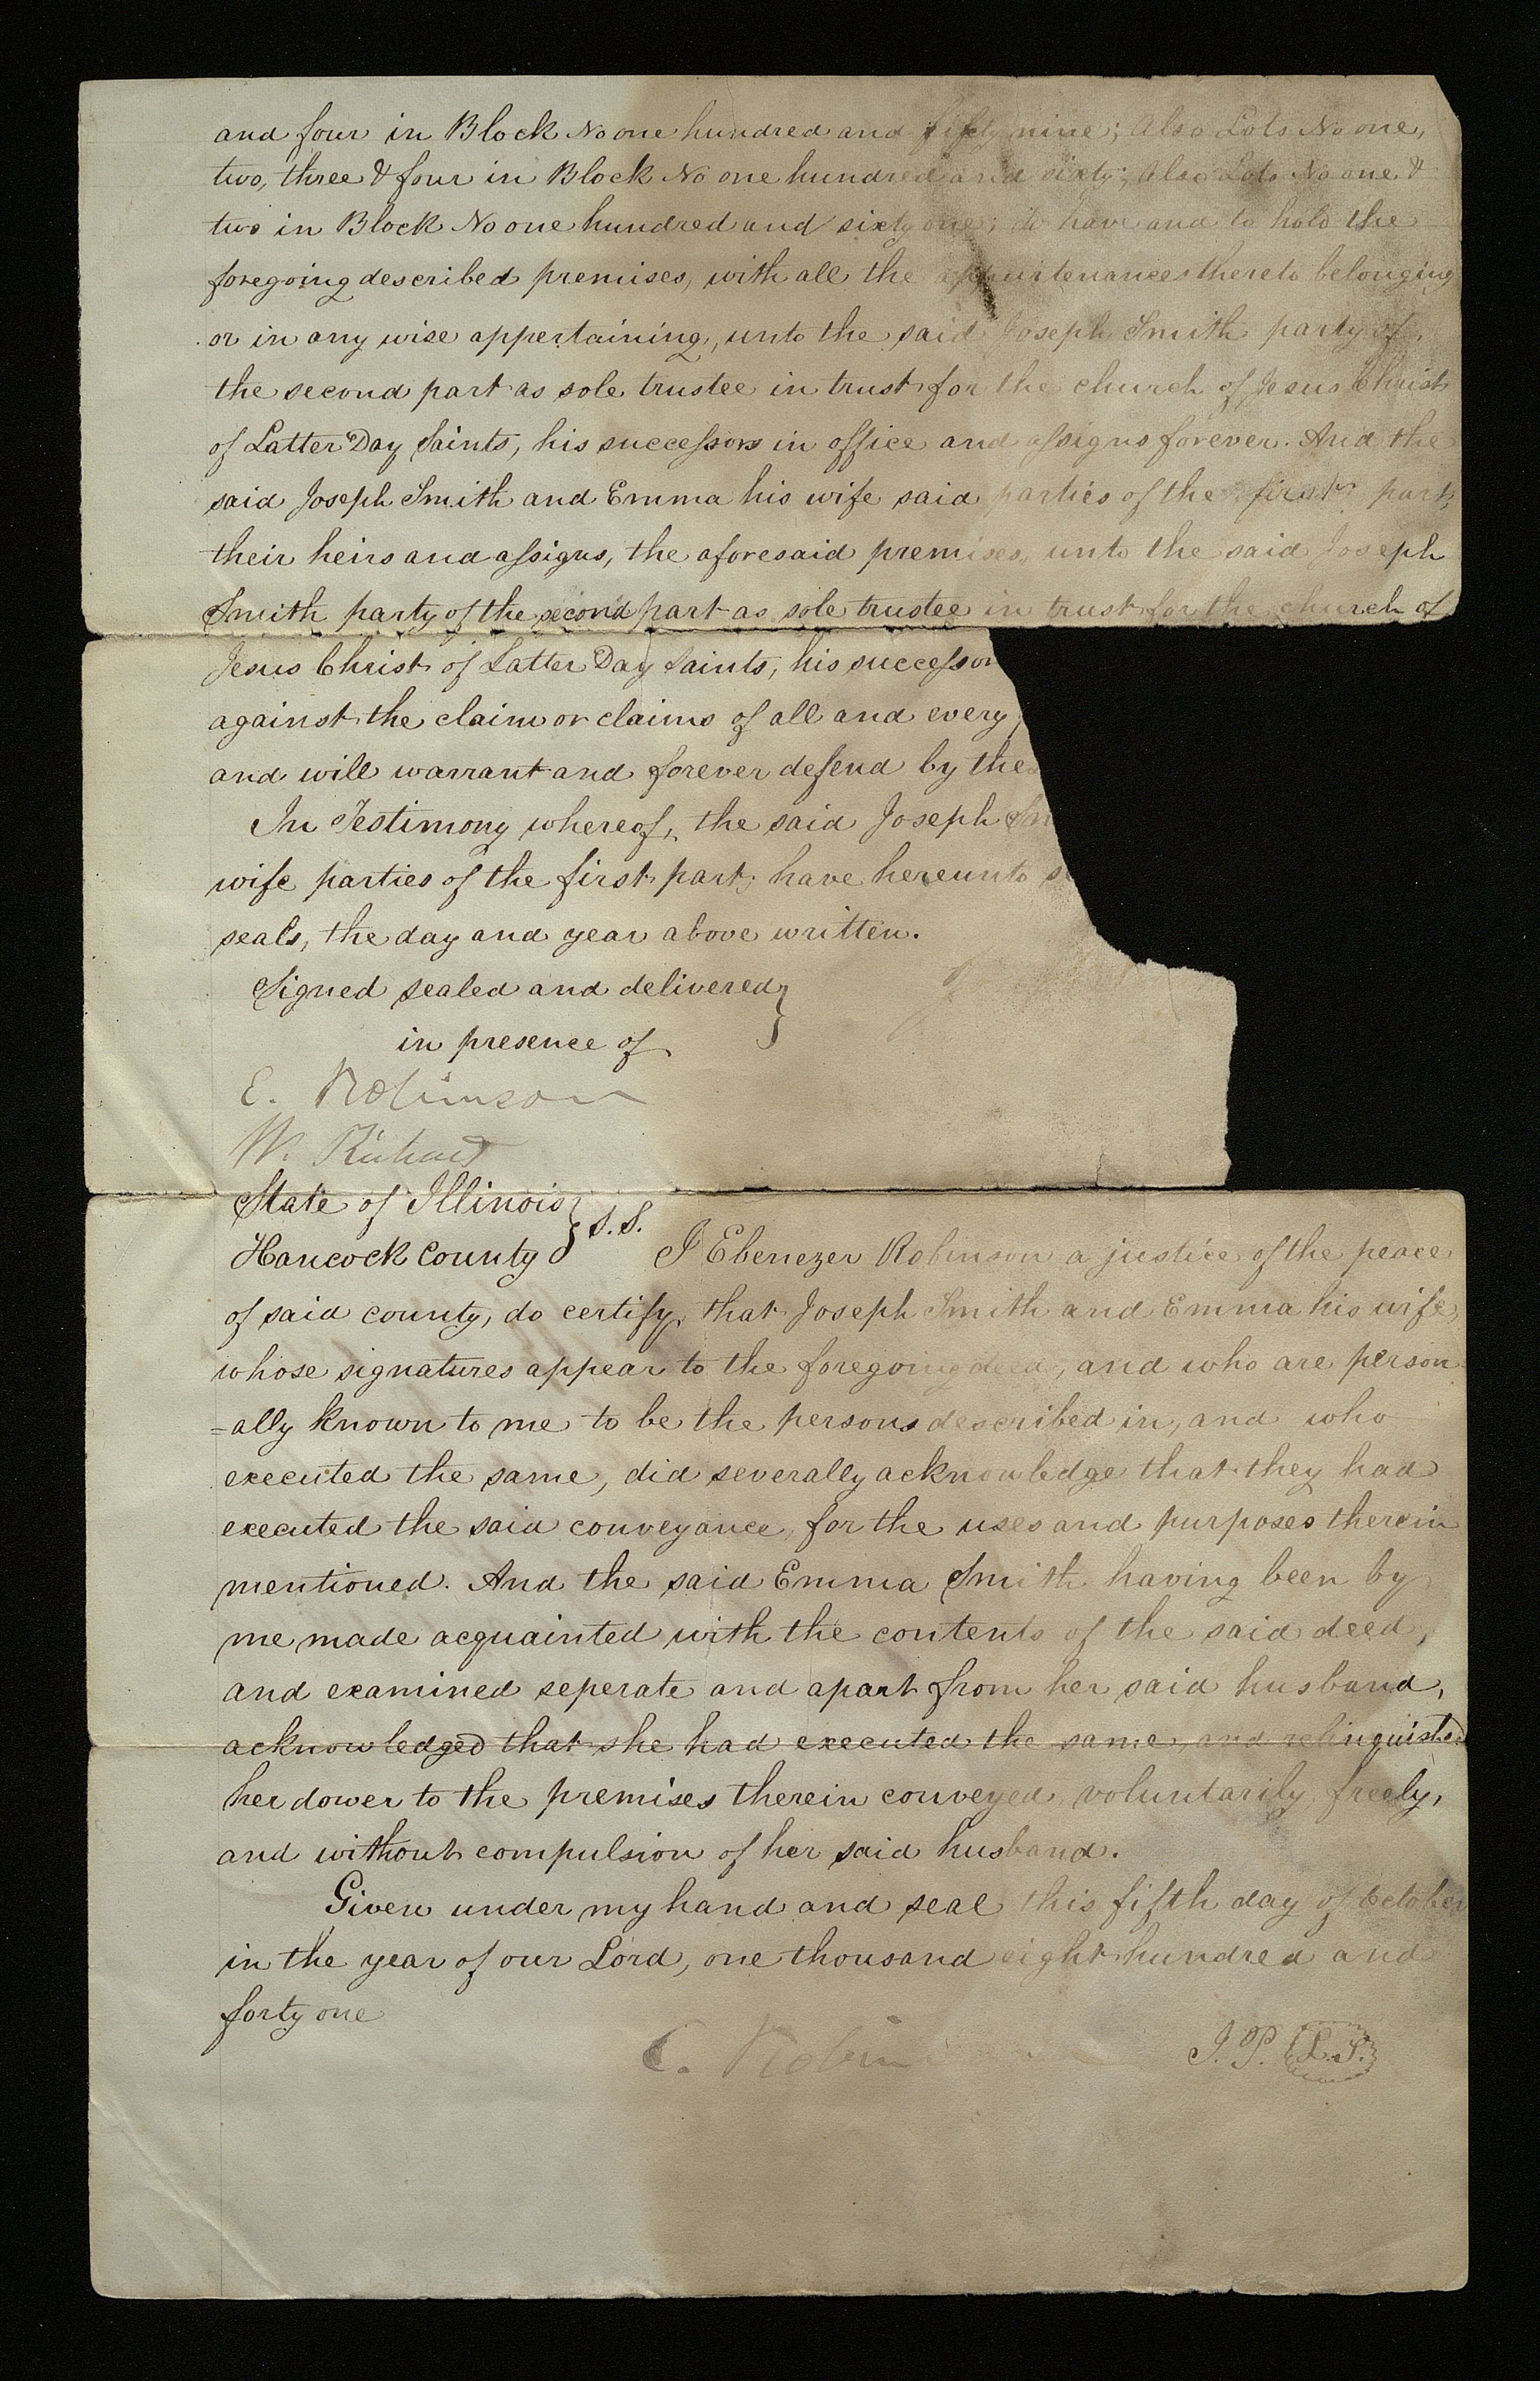 and four in Block No one hundred and fifty nine; Also Lots No one,
two, three & four in Block No one hundred and sixty; Also Lots No one &
two in Block No one hundred and sixty one; to have and to hold the
foregoing described premises, with all the appurtenances thereto belonging
or in any wise appertaining, unto the said Joseph Smith party of
the second part as sole trustee in trust for the church of Jesus Christ
of Latter Day Saints, his successors in office and assigns forever. And the
said Joseph Smith and Emma his wife said parties of the first part,
their heirs and assigns, the aforesaid premises, unto the said Joseph
Smith party of the second part as sole trustee in trust for the church of
Jesus Christ of Latter Day Saints, his successor
against the claim or claims of all and every
and will warrant and forever defend by the
In Testimony whereof, the said Joseph Sm
wife parties of the first part, have hereunto s
seals, the day and year above written.
Signed sealed and delivered }
in presence of
E. Robinson
W. Richards
State of Illinois } S.S.
Hancock County } I Ebenezer Robinson a justice of the peace
of said county, do certify, that Joseph Smith and Emma his wife,
whose signatures appear to the foregoing deed, and who are person
=ally known to me to be the persons described in, and who
executed the same, did severally acknowledge that they had
executed the said conveyance, for the uses and purposes therein
mentioned. And the said Emma Smith having been by
me made acquainted with the contents of the said deed,
and examined seperate and apart from her said husband,
acknowledged that she had executed the same, and relinquished
her dower to the premises therein conveyed, voluntarily, freely,
and without compulsion of her said husband.
Given under my hand and seal this fifth day of October
in the year of our Lord, one thousand eight hundred and
forty one
E. Robin J.P. L.S.